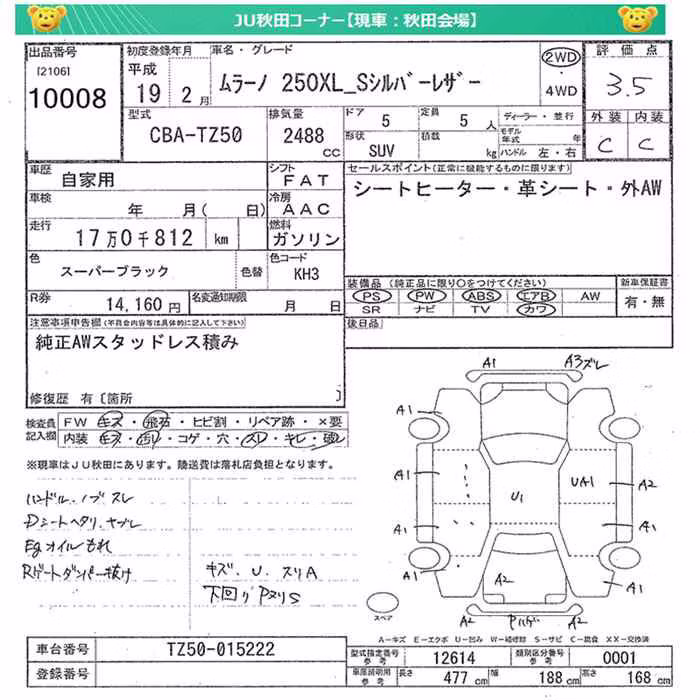 JU秋田コーナー【現車：秋田会場】
出品番号
[2106]
10008
初度登録年月
平成
19 2 月
車名・グレード
ムラーノ 250XL_Sシルバーレザー
2WD
・
4WD
評価点
3.5
外装 内装
C C
型式
CBA-TZ50
排気量
2488
CC
ドア
5
定員
5 人
形状
SUV
積載
kg
ディーラー・並行
モデル年式 年
ハンドル 左・右
車歴
自家用
シフト
FAT
セールスポイント(正常に機能するものに限ります)
シートヒーター・革シート・外AW
車検
年 月( 日)
冷房
AAC
走行
17万0千812 km
燃料
ガソリン
色
スーパーブラック
色替
色コード
KH3
装備品 (純正品に限り○をつけてください)
PS PW ABS エアB AW
SR ナビ TV カワ
新車保証書
有・無
R券
14,160 円
名変通知期限
月 日
後日品
注意事項申告欄(不具合内容等は具体的に記入して下さい)
純正AWスタッドレス積み
修復歴 有〔箇所 〕
検査員
記入欄
FW キズ・飛石・ヒビ割・リペア跡・×要
内装・キズ・汚レ・コゲ・穴・スレ・キレ・破レ
※現車はJU秋田にあります。陸送費は落札店負担となります。
ハンドル・ノブスレ
Dシートヘタリ、ヤブレ
Egオイルもれ
Rゲートダンパー抜け
キズ、U、スリA
下回りPスリS
A1 A3ズレ
A1 A1
A1 U1 UA1 A2
A1 A1
A1 A2 A1
A2 Pハゲ A2
スペア
A－キズ E－エクボ U－凹み W－補修跡 S－サビ C－腐食 XX－交換済
車台番号
TZ50-015222
登録番号
型式指定番号
参考
12614
類別区分番号
参考
0001
車庫証明用
参考
長さ
477 cm
幅
188 cm
高さ
168 cm